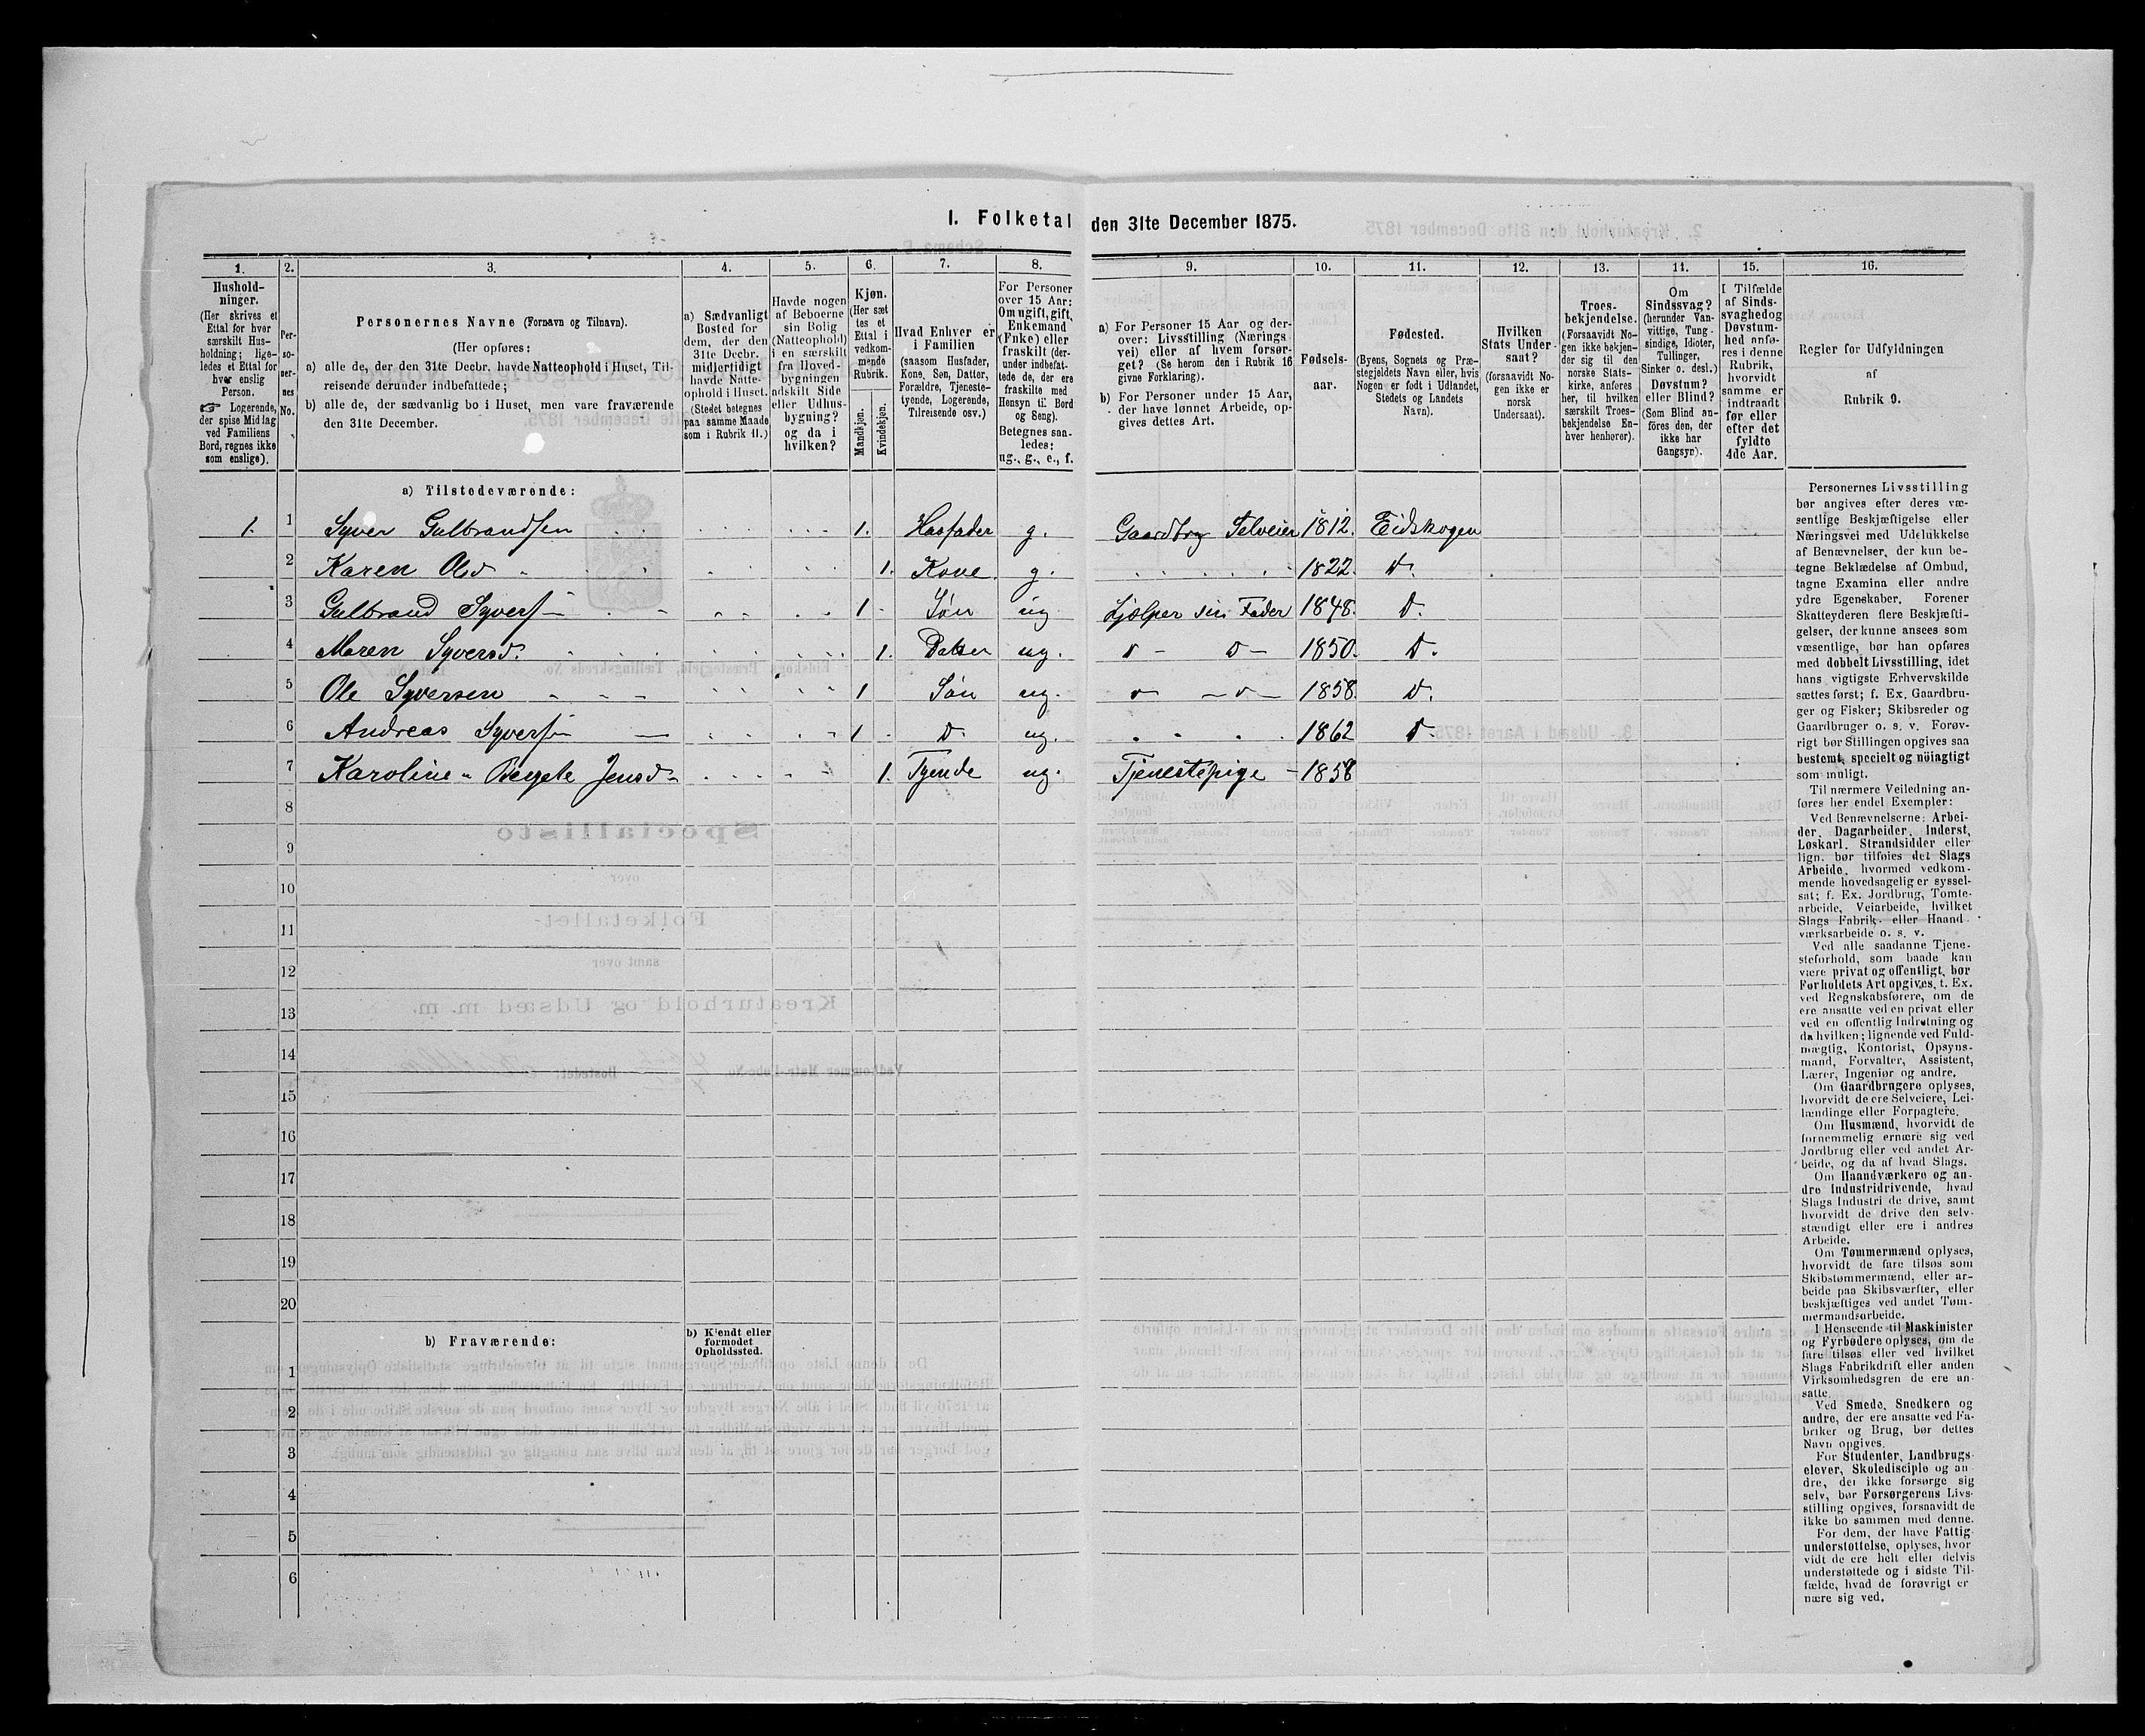 I. Folketal den 31te December 1875.
1. 2. 3. 4. 5. 6. 7. 8. 9. 10. 11. 12. 13. 14. 15. 16.
Hushold-
ninger.
(Her skrives et
Ettal for hver
særskilt Hus-
holdning; lige-
ledes et Ettal for
hver enslig
Person.
☞ Logerende,
der spise Middag
ved Familiens
Bord, regnes ikke
som enslige).
Per-
so-
ner-
nes
No.
Personernes Navne (Fornavn og Tilnavn).
(Her opføres:
a) alle de, der den 31te Decbr. havde Natteophold i Huset, Til-
reisende derunder indbefattede;
b) alle de, der sædvanlig bo i Huset, men vare fraværende
den 31te December.
a) Sædvanligt
Bosted for
dem, der den
31te Decbr.
midlertidigt
havde Natte-
ophold i Huset.
(Stedet betegnes
paa samme Maade
som i Rubrik 11.)
Havde nogen
af Beboerne
sin Bolig
(Natteophold)
i en særskilt
fra Hoved-
bygningen
adskilt Side
eller Udhus-
bygning?
og da i
hvilken?
Kjøn.
(Her sæt
tes et
Ettal i
vedkom-
mende
Rubrik.
Mandkjøn.
Kvindekjøn.
Hvad Enhver er
i Familien
(saasom Husfader,
Kone, Søn, Datter,
Forældre, Tjeneste-
tyende, Logerende,
Tilreisende osv.)
For Personer
over 15 Aar:
Om ugift, gift,
Enkemand
(Enke) eller
fraskilt (der-
under indbefat-
tede de, der ere
fraskilte med
Hensyn til Bord
og Seng).
Betegnes saa-
ledes:
ug., g., e., f.
a) For Personer 15 Aar og der-
over: Livsstilling (Nærings
vei) eller af hvem forsør-
get? (Se herom den i Rubrik 16
givne Forklaring).
b) For Personer under 15 Aar,
der have lønnet Arbeide, op-
gives dettes Art.
Fødsels-
aar.
Fødested.
(Byens, Sognets og Præ-
stegjeldets Navn eller, hvis
Nogen er født i Udlandet,
Stedets og Landets
Navn).
Hvilken
Stats Under-
saat?
(forsaavidt No-
gen ikke er
norsk
Undersaat).
Troes-
bekjendelse.
(Forsaavidt No-
gen ikke bekjen-
der sig til den
norske Stats-
kirke, anføres
her, til hvilken
særskilt Troes-
bekjendelse En-
hver henhører).
Om
Sindssvag?
(herunder Van-
vittige, Tung-
sindige, Idioter,
Tullinger,
Sinker o. desl.)
Døvstum?
eller Blind?
(Som Blind an-
føres den, der
ikke har
Gangsyn).
I Tilfælde
af Sinds-
svaghed og
Døvstum-
hed anfø-
res i denne
Rubrik,
hvorvidt
samme er
indtraadt
før eller
efter det
fyldte
4de Aar.
Regler for Udfyldningen
af
Rubrik 9.
a) Tilstedeværende:
1. 1 Syver Gulbrandsen 1. Husfader g. Gaardbrg Selveier 1812. Eidskogen
2 Karen Olsd 1. Kone. g. 1822. D.
3 Gulbrand Syvers 1 Søn ug Hjælper sin Fader 1848. D.
4 Maren Syversd. 1. Datter ug. D - D - 1850. D.
5 Ole Syversen 1 Søn ug. D - D - 1858. D.
6 Andreas Syvers 1 D ug. 1862 D.
7 Karoline Jensd 1. Tyende ug. Tjenestepige - 1858
8
9
10
11
12
13
14
15
16
17
18
19
20
b) Fraværende:
b) Kjendt eller
formodet
Opholdssted.
1
2
3
4
5
6
Personernes Livsstilling
bør angives efter deres væ-
sentlige Beskjæftigelse eller
Næringsvei med Udelukkelse
af Benævnelser, der kun be-
tegne Beklædelse af Ombud,
tagne Examina eller andre
ydre Egenskaber. Forener
Skatteyderen flere Beskjæfti-
gelser, der kunne ansees som
væsentlige, bør han opføres
med dobbelt Livsstilling, idet
hans vigtigste Erhvervskilde
sættes først; f. Ex. Gaardbru-
ger og Fisker; Skibsreder og
Gaardbruger o. s. v. Forøv-
rigt bør Stillingen opgives saa
bestemt, specielt og nöiagtigt
som muligt.
Til nærmere Veiledning an-
føres her endel Exempler:
Ved Benævnelserne: Arbei-
der, Dagarbeider, Inderst,
Løskarl, Strandsidder eller
lign. bør tilføies det Slags
Arbeide, hvormed vedkom-
mende hovedsagelig er syssel-
sat; f. Ex. Jordbrug, Tomte-
arbeide, Veiarbeide, hvilket
Slags Fabrik- eller Haand-
værksarbeide o. s. v.
Ved alle saadanne Tjene-
steforhold, som baade kan
være privat og offentligt, bør
Forholdets Art opgives, t. Ex.
ved Regnskabsførere, om de
ere ansatte ved en privat eller
ved en offentlig Indretning og
da hvilken; lignende ved Fuld-
mægtig, Kontorist, Opsyns-
mand, Forvalter, Assistent,
Lærer, Ingeniør og andre.
Om Gaardbrugere oplyses,
hvorvidt de ere Selveiere, Lei-
lændinge eller Forpagtere.
Om Husmænd, hvorvidt de
fornemmelig ernære sig ved
Jordbrug eller ved andet Ar-
beide, og da af hvad Slags.
Om Haandværkere og an-
dre Industridrivende, hvad
Slags Industri de drive, samt
hvorvidt de drive den selv-
stændigt eller ere i andres
Arbeide.
Om Tømmermænd oplyses,
hvorvidt de fare tilsøs som
Skibstømmermænd, eller ar-
beide paa Skibsværfter, eller
beskjæftiges ved andet Tøm-
mermandsarbeide.
I Henseende til Maskinister
og Fyrbødere oplyses, om de
fare tilsøs eller ved hvilket
Slags Fabrikdrift eller anden
Virksomhedsgren de ere an-
satte.
Ved Smede, Snedkere og
andre, der ere ansatte ved Fa-
briker og Brug, bør dettes
Navn opgives.
For Studenter, Landbrugs-
elever, Skoledisciple og an-
dre, der ikke forsørge sig
selv, bør Forsørgerens Livs-
stilling opgives, forsaavidt de
ikke bo sammen med denne.
For dem, der have Fattig-
understøttelse, oplyses, hvor
vidt de ere helt eller delvis
understøttede og i sidste Til-
fælde, hvad de forøvrigt er
nære sig ved.